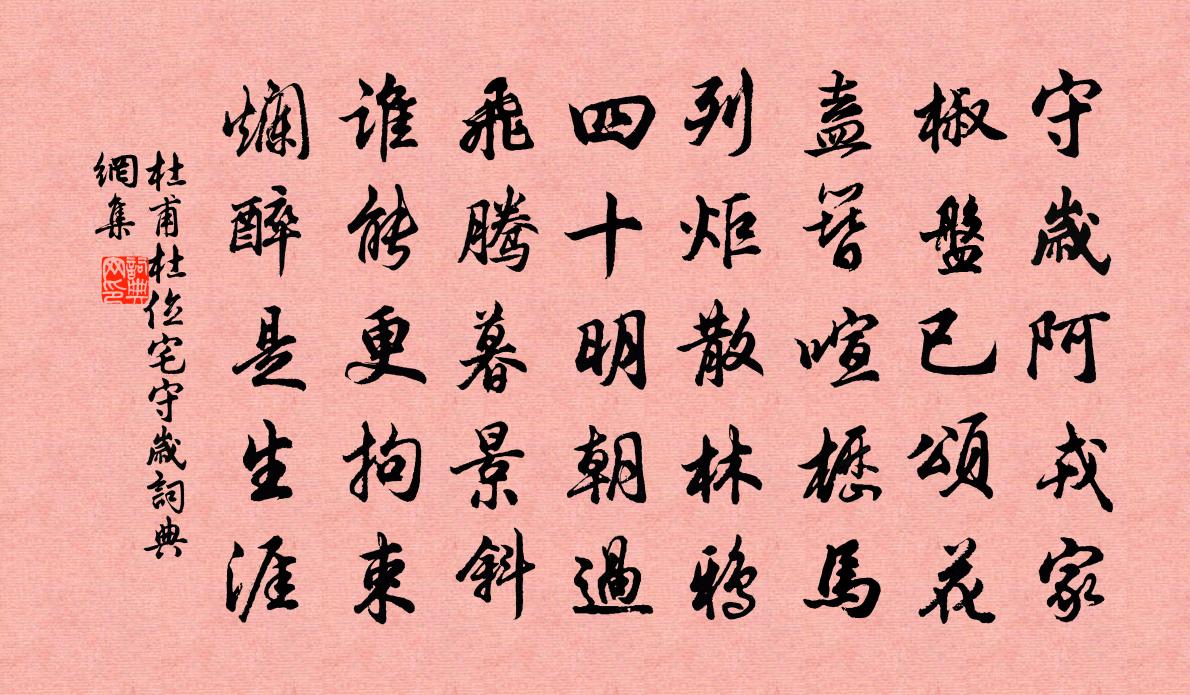 守歲阿戎家
椒盤已頌花
盍簪喧櫪馬
列炬散林鴉
四十明朝過
飛騰暮景斜
誰能更拘束
爛醉是生涯
杜甫杜位宅守歲詞典
網集
詞典
网印